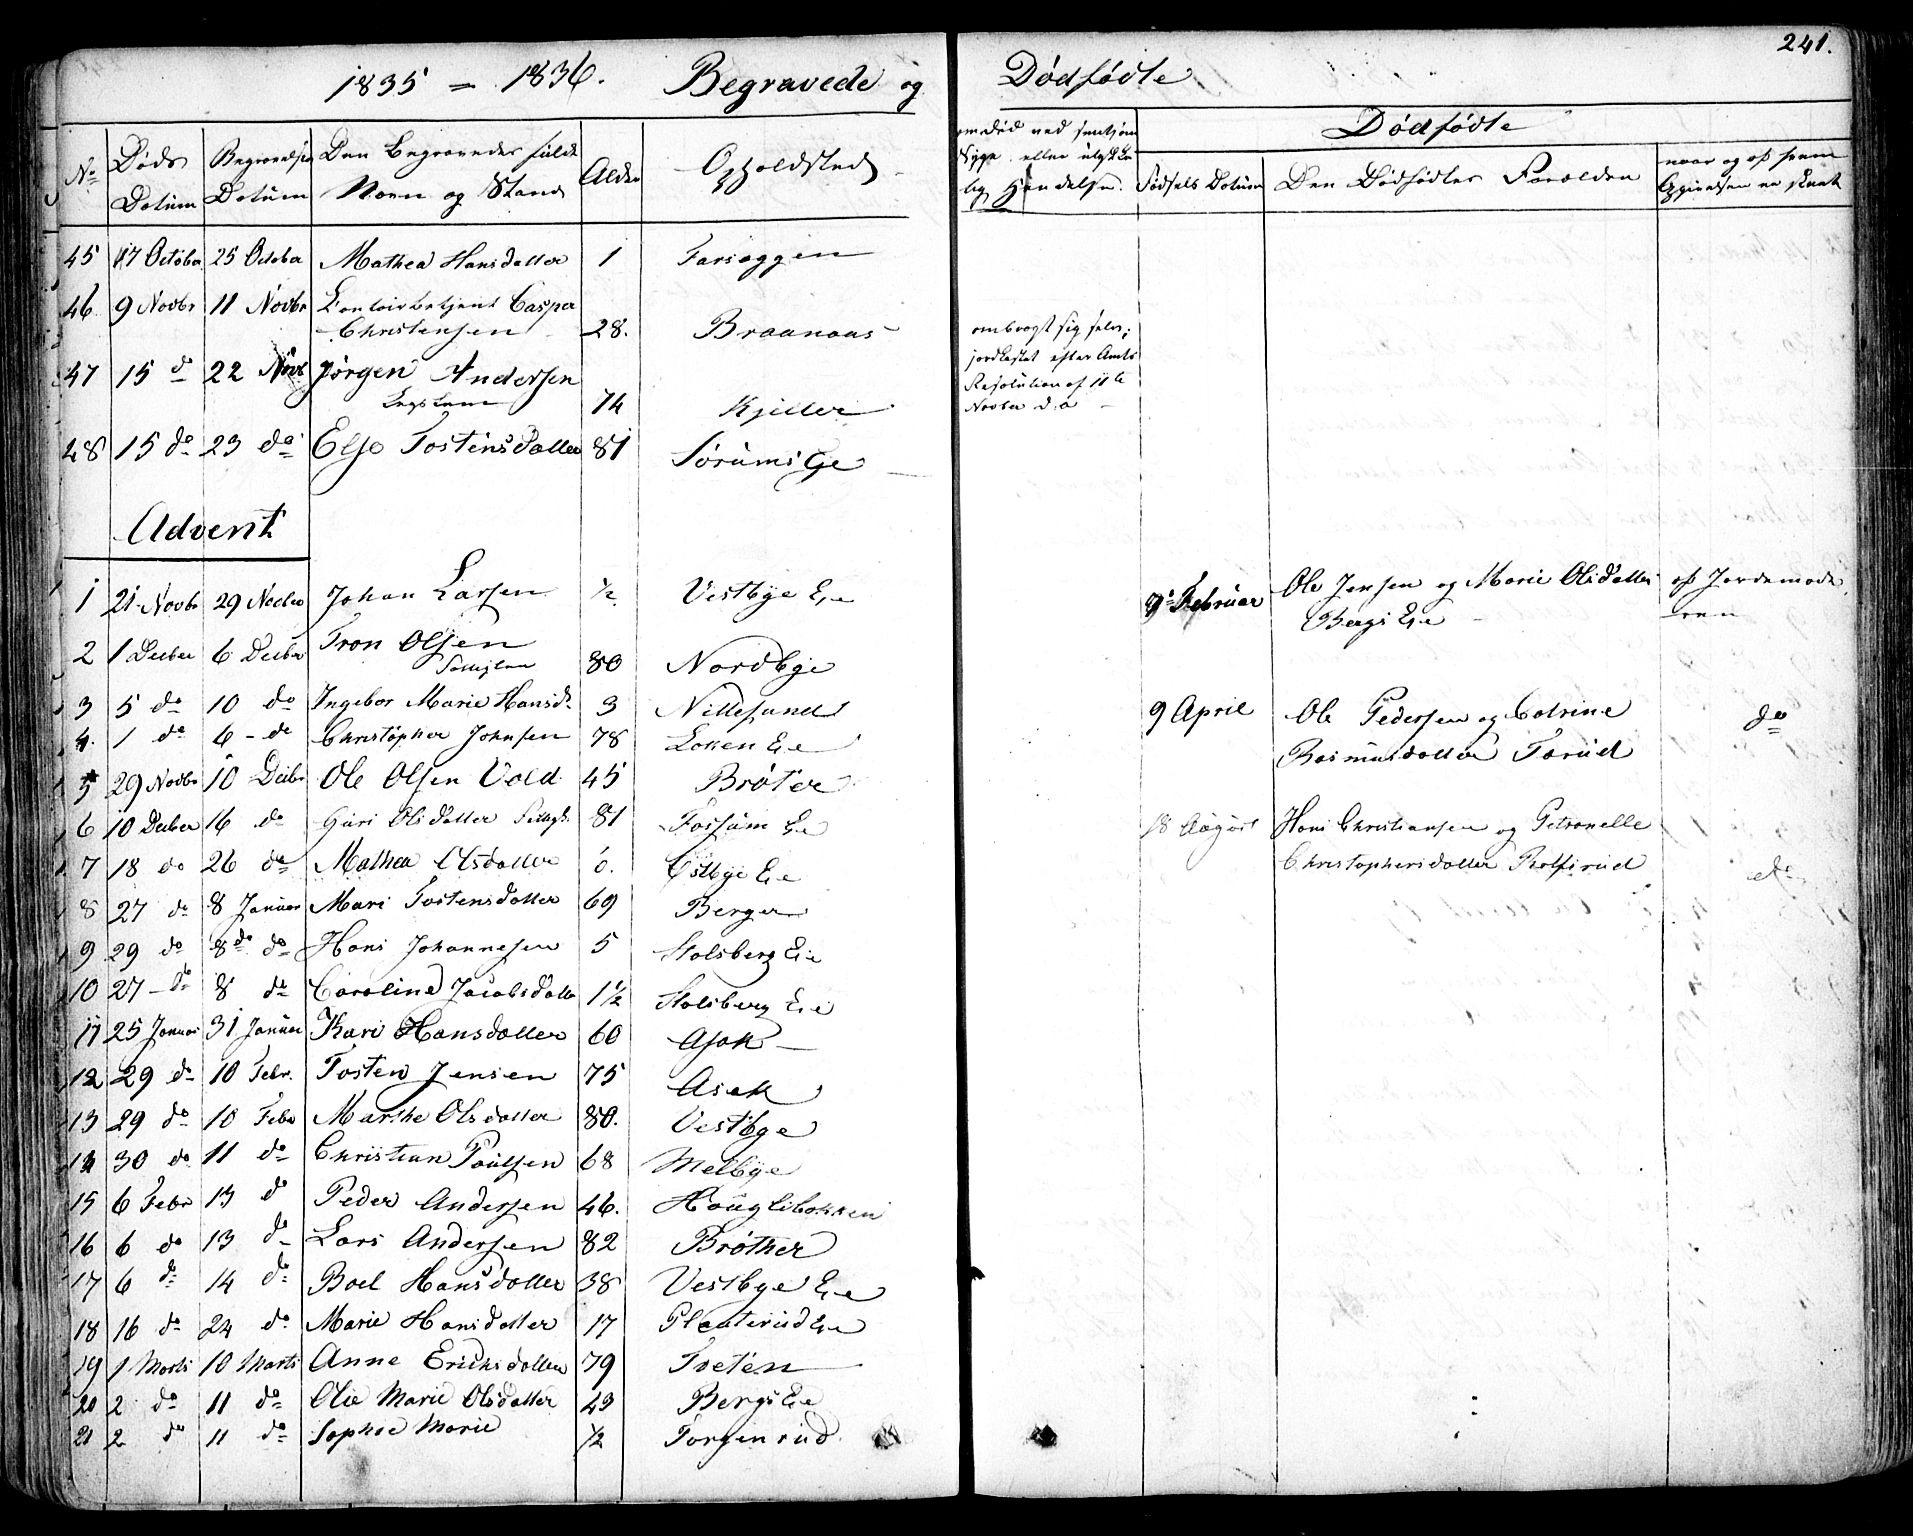 241.
1835 = 1836. Begravede og Dødfødte
No Døds Datum Begravelses Datum Den Begravedes fulde Navn og Stand Alder Opholdsted
om død ved smitsom Syge eller ulykkelig Hændelse.
Dødfødte
Fødsels Datum Den Dødfødtes Forælden naar og af hvem Opgivelsen er skeet
45 17 October 25 October Mathea Hansdatter 1 Farseggen
46 9 Novbr 11 Novbr Contoirbetjent Casper
Christensen 28. Braanaas
ombragt sig selv;
jordkastet efter Amts
Resolution af 11te
Novber d. a
47 15 do 22 Novb Jørgen Andersen
Lægslem 74 Kjeller
48 15 do 23 do Else Tostensdatter 81 Sørums Eje
Advent
1 21 Novbr 29 Novbr Johan Larsen ½ Vestbye Eie
9 Februar Ole Jensen og Marie Olsdatter af Jordemode
Bergs Eie ren
2 1 Decber 6 Decbr Tron Olsen
80 Nordbye
3 5 do 10 do Ingebor Marie Hansd. 3 Nittesund
9 April Ole Pedersen og Catrine do
Rasmusdatter Tærud
4. 1 do 6 - do Christopher Johnsen 78 Løken Eie
5 29 Novbr 10 Decbr Ole Olsen Vold 45 Brøter
6 10 Decber 16 do Guri Olsdatter 81 Fossum Eie
18 August Hans Christiansen og Petronelle
Christophersdatter Rolfsrud do
7 18 do 26 do Mathea Olsdatter 0. Østbye Eie
8 27 do 8 Januar Mari Tostensdatter 69 Berger
9 29 do 8de do Hans Johannesen 5 Stalsberg Eie
10 27 - do 8 do Caroline Jacobsdatter 1½ Stalsberg Eie
11 25 Januar 31 Januar Kari Hansdatter 60 Asak
12 29 do 10 Febr. Tosten Jensen 75 Asak
13 29 do 10 Febr Marthe Olsdatter 80. Vestbye
14 30 do 11 do Christian Poulsen 68 Melbye
15 6 Febr 13 do Peder Andersen 46. Houglibakken
16 6 do 13 do Lars Andersen 82 Brøther
17 6 do 14 do Boel Hansdatter 38 Vestbye Eie
18 16 do 24 do Marie Hansdatter 17 Plaaterud Eie
19 1 Marts 10 Marts Anne Erichsdatter 79 Tveten
20 2 do 11 do Olia Marie Olsdatter 43 Bergs Eie
21 2 do 11 do Sophie Marie ½ Torgenrud